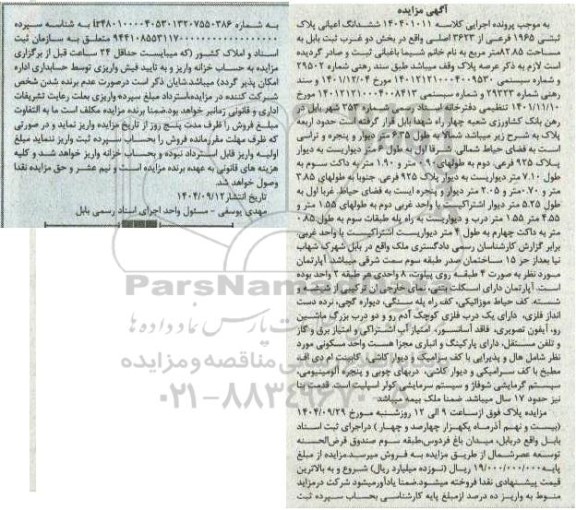 آگهی مزایده
به موجب پرونده اجرایی کلاسه ۱۴۰۴۰۱۰۱۱ ششدانگ اعیانی پلاک
ثبتی ۱۹۶۵ فرعی از ۳۶۲۳ اصلی واقع در بخش دو غرب ثبت بابل به
مساحت ۸۲.۸۵متر مربع به نام خانم شیما باغبانی ثبت و صادر گردیده
است لازم به ذکر عرصه پلاک وقف میباشد طبق سند رهنی شماره ۲۹۵۰۲
و شماره سیستمی ۱۴۰۱۲۱۲۱۰۰۰۴۰۰۹۵۳۰ مورخ ۱۴۰۱/۱۲/۰۴ و سند
رهنی شماره ۲۹۳۲۳ و شماره سیستمی ۱۴۰۱۲۱۲۱۰۰۰۴۰۰۸۴۱۲ مورخ
۱۴۰۱/۱۱/۱۰ تنظیمی دفترخانه اسناد رسمی شماره ۳۵۳ شهر بابل در
رهن بانک کشاورزی شعبه چهار راه شهدا بابل قرار گرفته است حدود اربعه
پلاک به شرح زیر میباشد: شمالا به طول ۶.۳۵ متر دیوار و پنجره و تراسی
است به فضای حیاط شمالی. شرقا اول به طول ۴.۶ متر دیواریست به دیوار
پلاک ۹۲۵ فرعی. دوم به طولهای ۰.۹۰ متر و ۱.۹۰ متر به داکت سوم به
طول ۷.۱۰ متر دیواریست به دیوار پلاک ۹۲۵ فرعی. جنوبا به طولهای ۳.۸۵
متر و ۰.۷۰ متر و ۲.۰۵ متر دیوار و پنجره ایست به فضای حیاط. غربا اول به
طول ۵.۲۵ متر دیوار اشتراکیست با واحد غربی دوم به طولهای ۱.۵۵ متر و
۴.۵۵ متر ۱.۵۵ متر درب و دیواریست به راه پله طبقات سوم به طول ۰.۸۵
متر به داکت چهارم به طول ۴ متر دیواریست اشتراکیست با واحد غربی.
برابر گزارش کارشناسان رسمی دادگستری ملک واقع در بابل شهرک شهاب
نیا بعداز حز ۱۵ ساختمان صدر طبقه سوم سمت شرقی میباشد آپارتمان
مورد نظر به صورت ۴ طبقه روی پیلوت، ۸ واحدی هر طبقه ۲ واحد بوده
است. آپارتمان دارای اسکلت نمای خارجی آن ترکیبی از و
شسته. کف حیاط موزائیکی، کف راه پله سنگی، دیواره گچی، نرده دست
انداز فلزی، دارای یک درب فلزی کوچک آدم رو و دو درب بزرگ ماشین
رو، آیفون تصویری، فاقد آسانسور، امتیاز آب اشتراکی و امتیاز برق و گاز
و تلفن مستقل، دارای پارکینگ و انباری مجزا هست واحد مسکونی مورد
نظر شامل هال و پذیرایی با کف سرامیک و دیوار کاشی، کابینت ام دی اف
مطبخ با کف سرامیکی و دیوار کاشی، دربهای چوبی و پنجره آلومینیومی،
سیستم گرمایشی شوفاژ و سیستم سرمایشی کولر اسپلیت است. قدمت بنا
نیز حدود ۱۷ سال میباشد. ضمنا ملک بیمه میباشد
مزایده پلاک فوق ازساعت ۹ الی ۱۲ روزشنبه مورخ ۱۴۰۴/۰۹/۲۹
(بیست و نهم آذرماه یکهزار چهارصد و چهار) دراجرای ثبت اسناد
بابل واقع دربابل، میدان باغ فردوس،طبقه سوم صندوق قرض‌الحسنه
توسعه عصرشمال از طریق مزایده به فروش میرسد.مزایده از مبلغ
پایه ۱۹/۰۰۰/۰۰۰/۰۰۰ ریال (نوزده میلیارد ریال) شروع و به بالاترین
قیمت پیشنهادی نقدا فروخته میشود.ضمنا یادآورمیشود شرکت درمزایده
منوط به واریز ده درصد ازمبلغ پایه کارشناسی بحساب سپرده ثبت
به شماره ir۴۸۰۱۰۰۰۰۴۰۵۳۰۱۳۲۰۷۵۵۰۳۸۶ به شناسه سپرده
۹۴۴۱۰۸۵۵۳۱۱۷۰۰۰۰۰۰۰۰۰۰۰۰۰۰ متعلق به سازمان ثبت
اسناد و املاک کشور (که میبایست حداقل ۲۴ ساعت قبل از برگزاری
مزایده به حساب خزانه واریز و به تایید فیش واریزی توسط حسابداری اداره
امکان پذیر گردد) میباشد.شایان ذکر است درصورت عدم برنده شدن شخص
شرکت کننده در مزایده،استرداد مبلغ سپرده واریزی بعلت رعایت تشریفات
اداری و قانونی زمانبر خواهد بود.ضمنا برنده مزایده مکلف است ما به التفاوت
مبلغ فروش را ظرف مدت پنج روز از تاریخ مزایده واریز نماید و در صورتی
که ظرف مهلت مقررمانده فروش را بحساب سپرده ثبت واریز ننماید مبلغ
اولیه واریز قابل استرداد نبوده و بحساب خزانه واریز خواهد شد و کلیه
هزینه های قانونی به عهده برنده مزایده است و نیم عشر و حق مزایده نقدا
وصول خواهد شد.
تاریخ انتشار:۱۴۰۴/۰۹/۱۲
مهدی یوسفی - مسئول واحد اجرای اسناد رسمی بابل
ParsNamadData
پایگاه اطلاع رسانی مناقصه و مزایده
۰۲۱-۸۸۳۴۹۶۷۰-۵